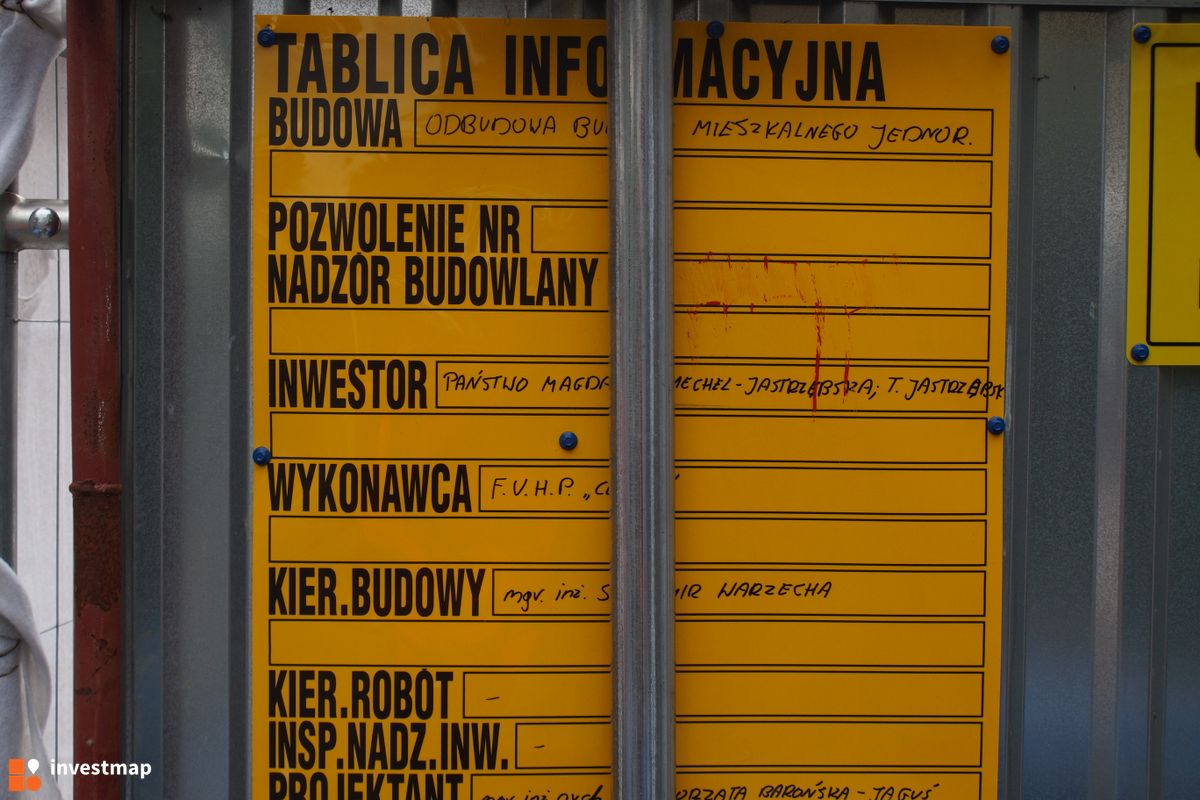 TABLICA INFO MACYJNA
BUDOWA ODBUDOWA BU MIESZKALNEGO JEDNOR.
POZWOLENIE NR
NADZÓR BUDOWLANY
INWESTOR PAŃSTWO MAGDA MECHEL-JASTRZĘBSKA; T. JASTRZĘBSK
WYKONAWCA F.V.H.P.
KIER.BUDOWY mgr. inż. S MIR WARZECHA
KIER.ROBÓT -
INSP.NADZ.INW. -
PROJEKTANT mgr inż. arch ORZATA BAROŃSKA-JAGUŚ
investmap